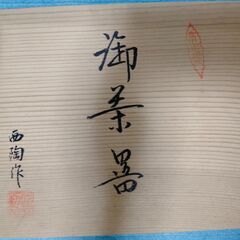 御茶器
西陶作